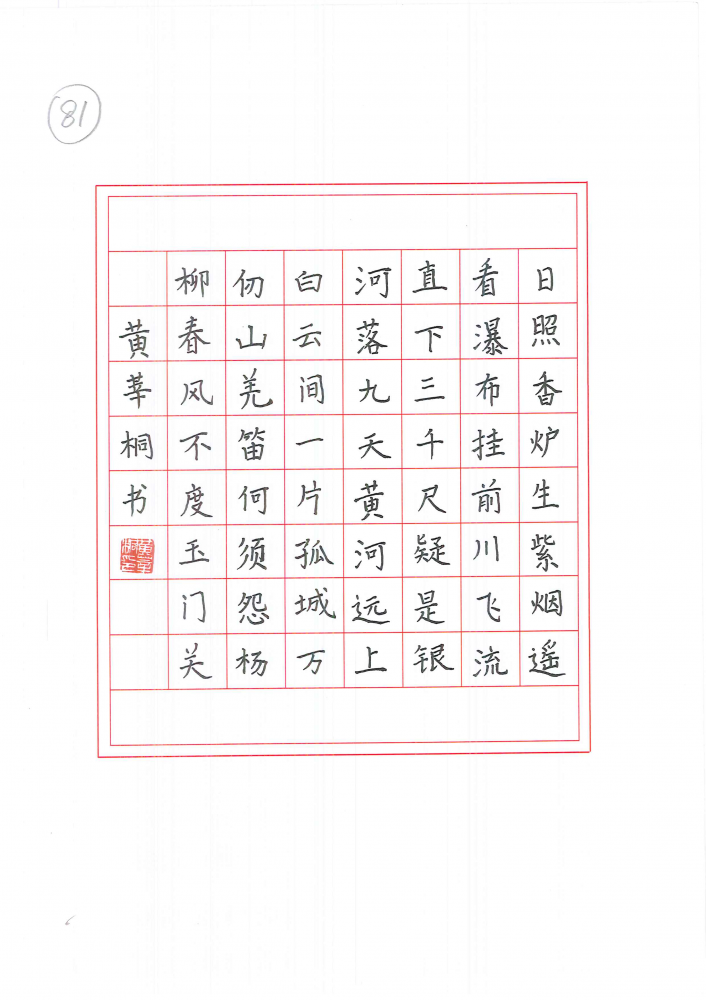 81
日照香炉生紫烟遥
看瀑布挂前川飞流
直下三千尺疑是银
河落九天黄河远上
白云间一片孤城万
仞山羌笛何须怨杨
柳春风不度玉门关
黄莘桐书